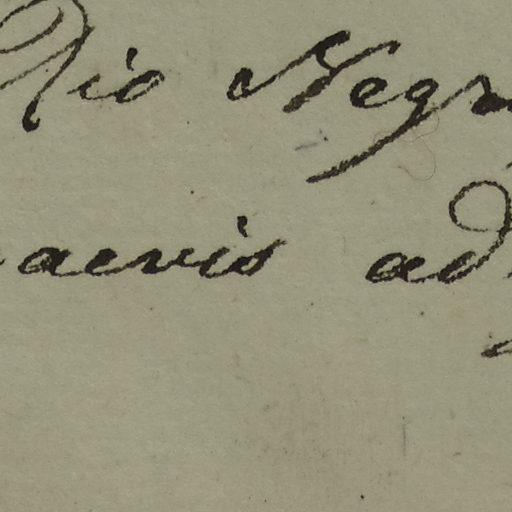 Rio Negr
aevis ad